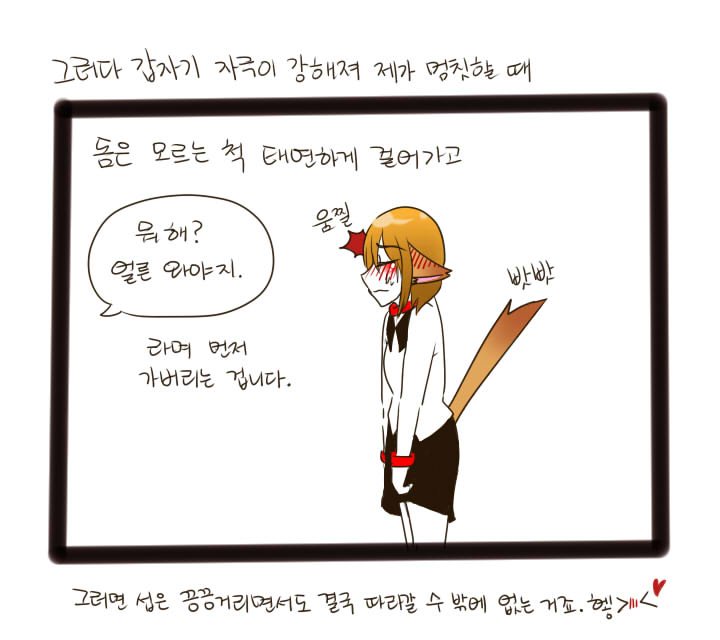 그러다 갑자기 자극이 강해져 제가 멈칫할 때
돔은 모르는 척 태연하게 걸어가고
움찔
뭐해?
얼른 와야지.
빳빳
라며 먼저
가버리는 겁니다.
그러면 섭은 끙끙거리면서도 결국 따라갈 수 밖에 없는 거죠. 헹>///<♥